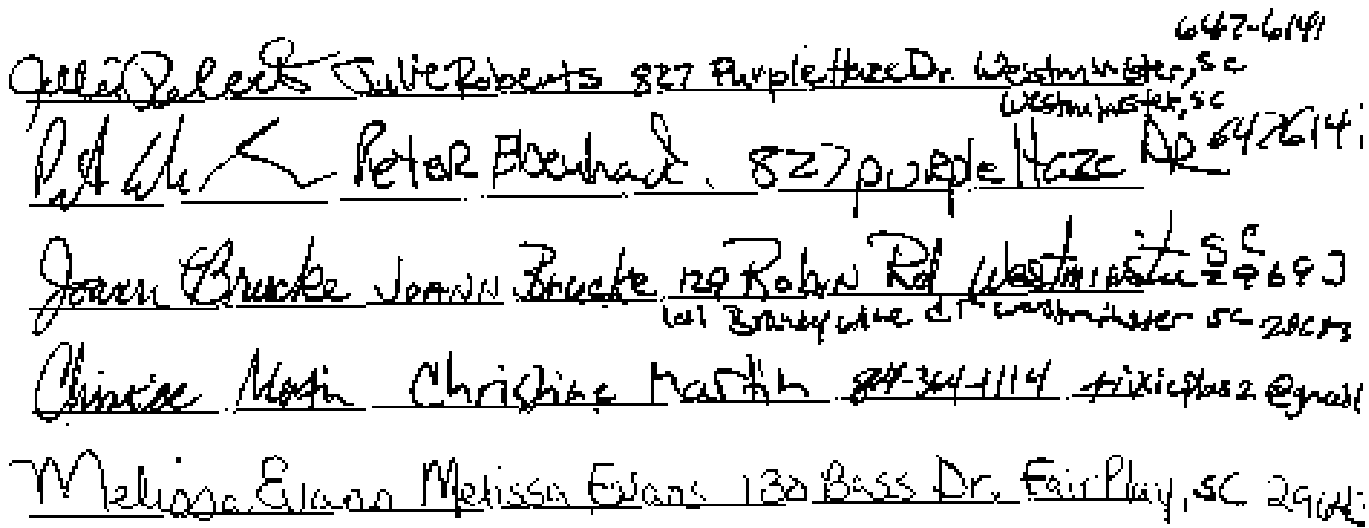 647-6141
Julie Roberts Julie Roberts 827 Purple Haze Dr. Westminister, SC
Westminster, SC
Peter 827 purple Haze DR 6476141
Joann Brucke JoANN Brucke 129 Robin Rd Westminster SC 29693
101 Brandywine ct westminster SC
Christine Martin Christine Martin 864-364-1114
Melissa Evans Melissa Evans 130 Bass Dr. Fair Play, SC 29643